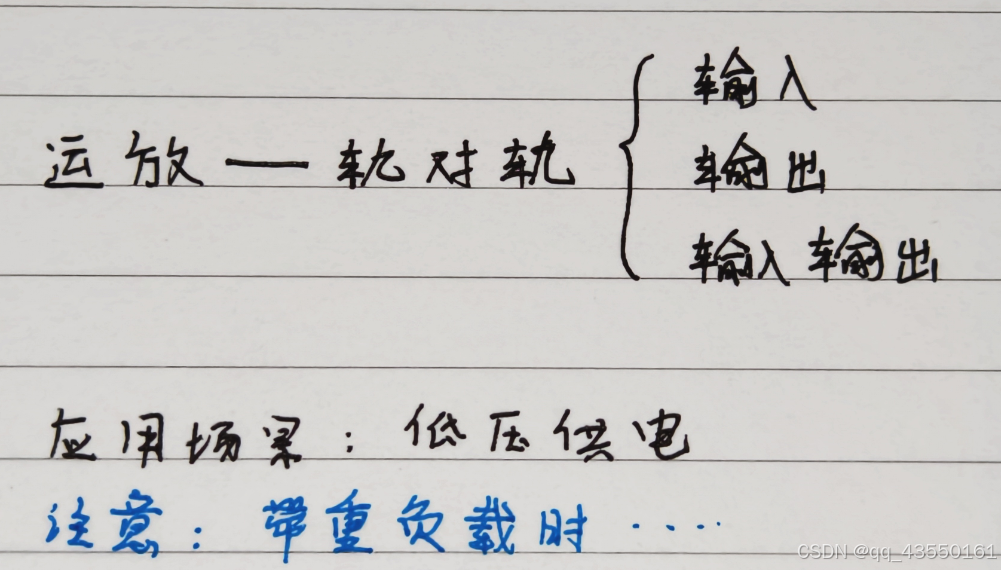 输入
运放 — 轨对轨
输出
输入输出
应用场景：低压供电
注意：带重负载时 ····
CSDN @qq_43550161